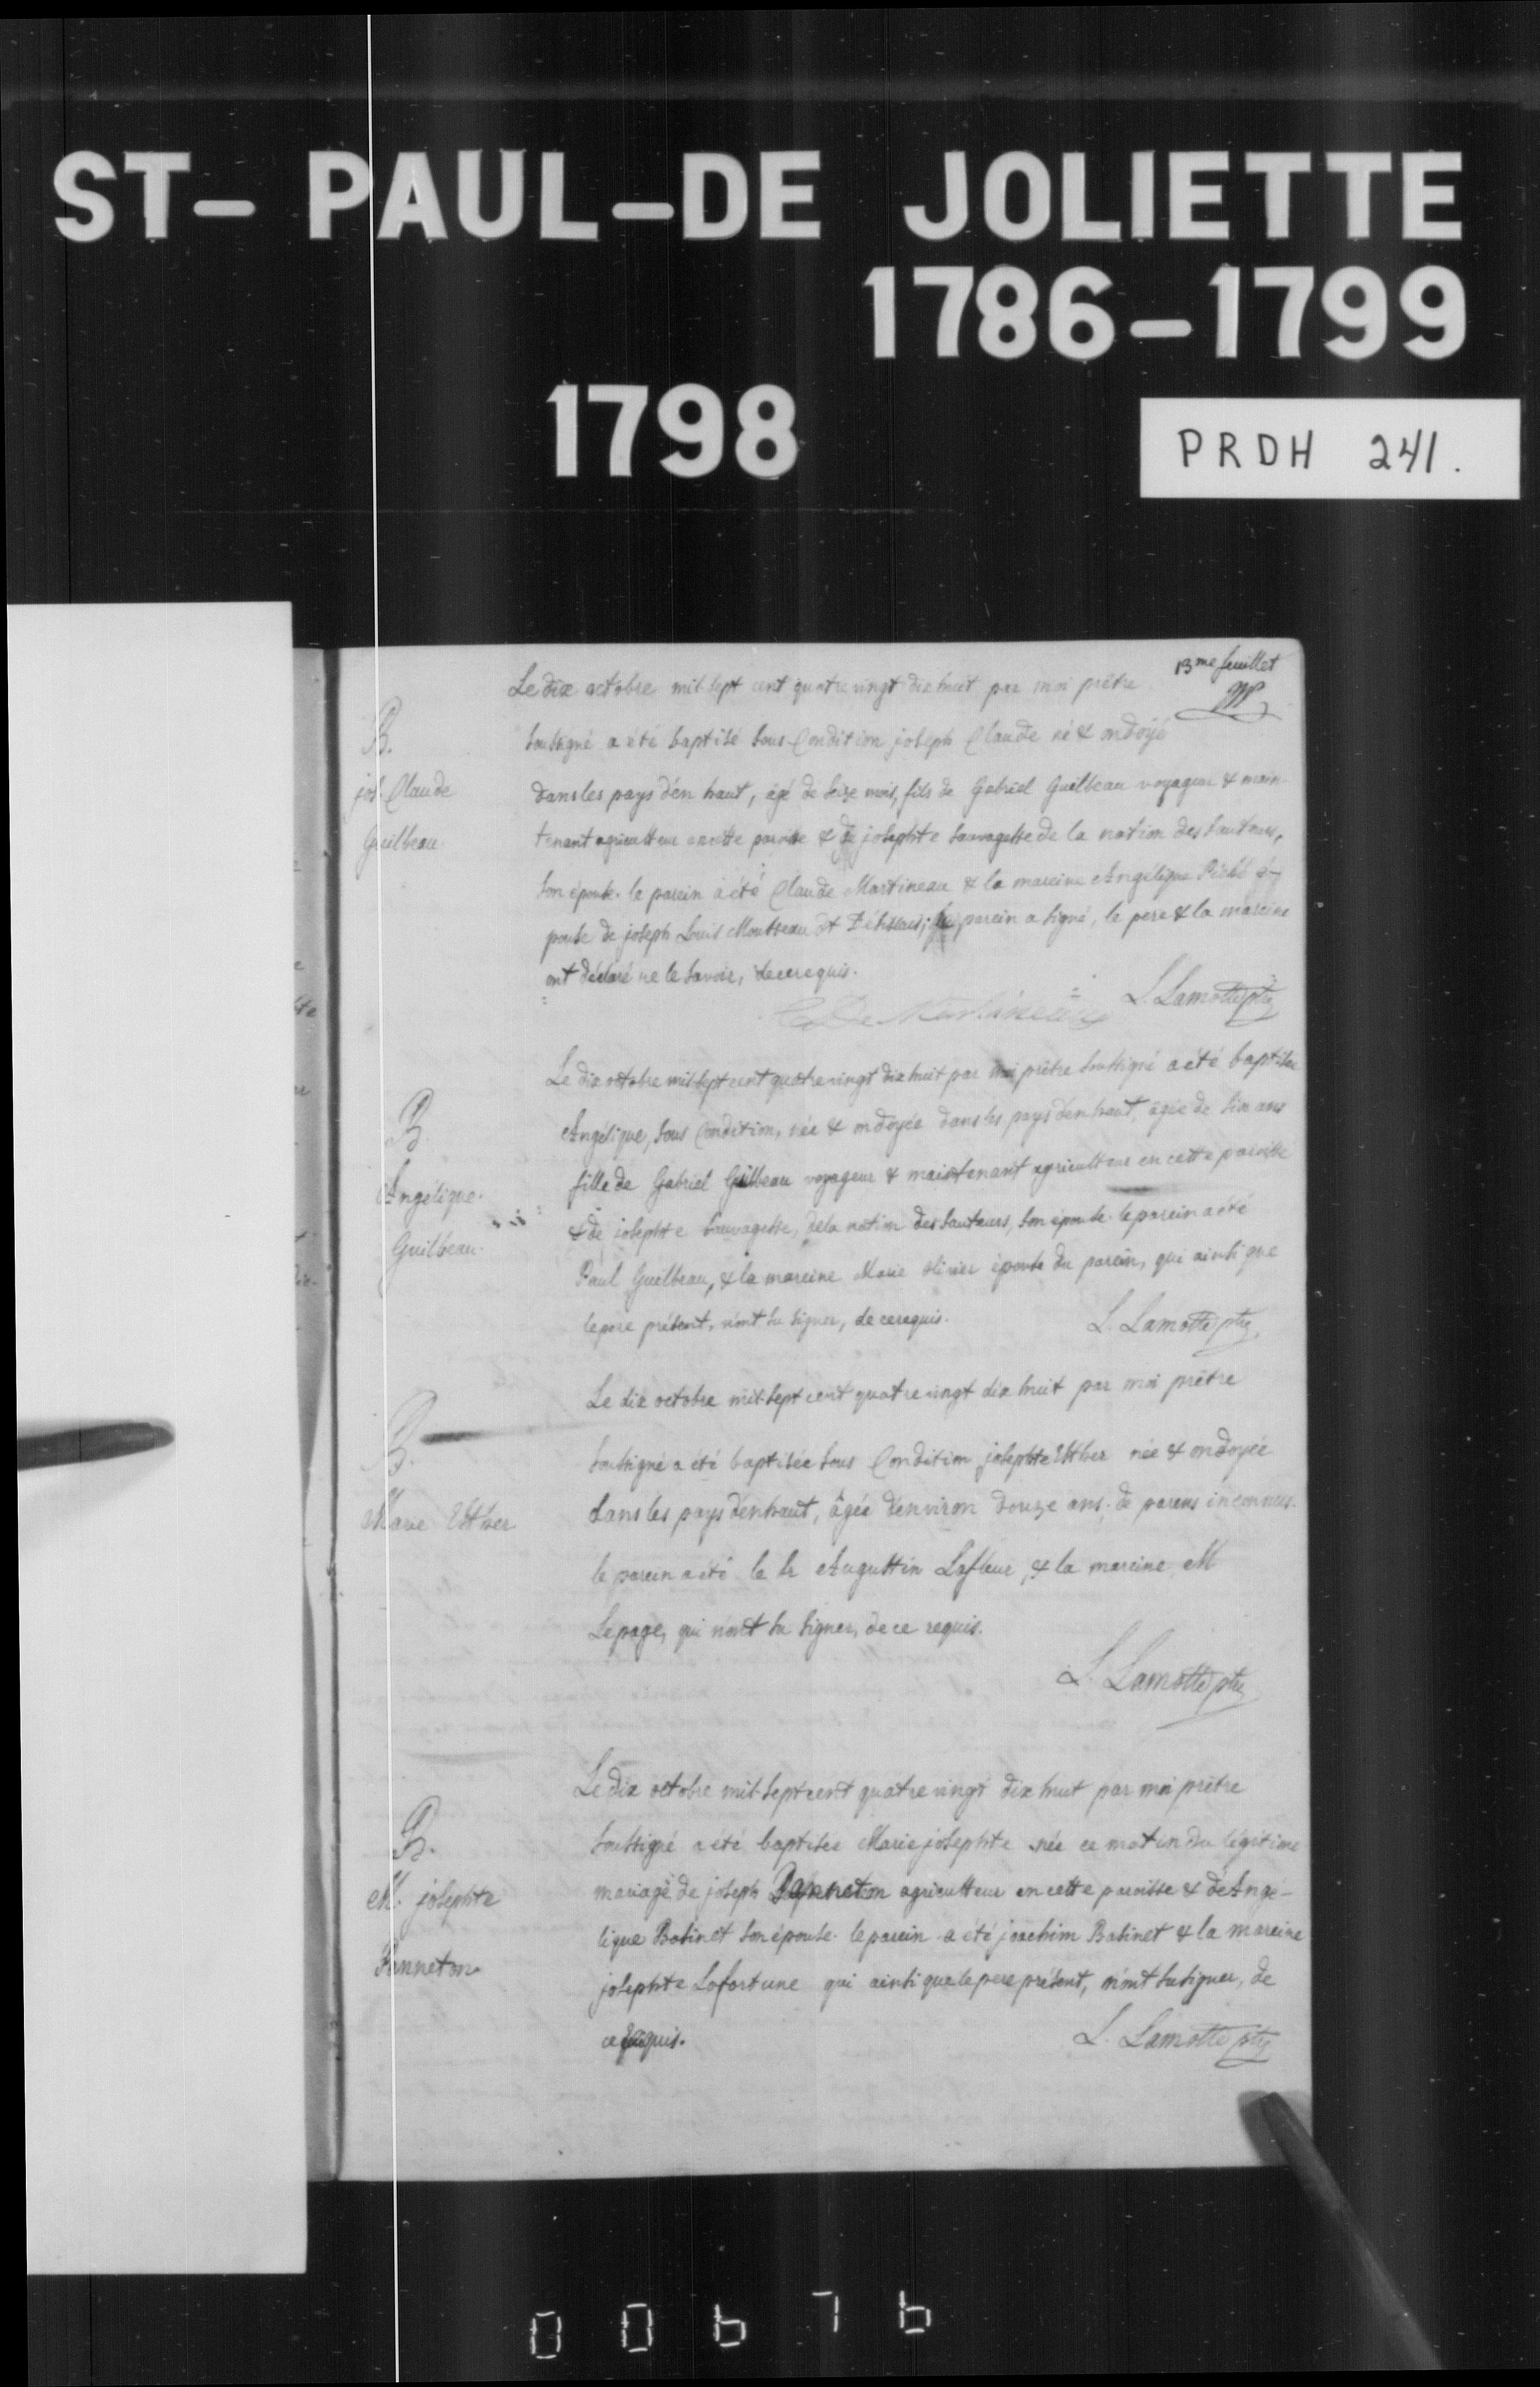 ST- PAUL-DE JOLIETTE
1786-1799
1798
PRDH 241.
13me feuillet
Le dix octobre mil sept cent quatre vingt dix huit par moi prêtre
B.
jos. Claude
Guilbeau.
soussigné a été baptisé sous Condition joseph Claude né & ondoyé
dans les pays d'en haut, âgé de seize mois, fils de Gabriel Guilbeau voyageur & main-
tenant agriculteur en cette paroisse & de josephte sauvagesse de la nation des sauteurs,
son épouse. le parein a été Claude Martineau & la mareine Angélique Piché é-
pouse de joseph Louis Mousseau dt parein a signé, le pere & la mareine
ont déclaré ne le savoir, de ce requis.
L. Lamotte ptre
Le dix octobre mil sept cent quatre vingt dix huit par moi prêtre soussigné a été baptisée
B.
Angélique.
Guilbeau.
Angélique, sous Condition, née & ondoyée dans les pays d'en haut, âgée de six ans
fille de Gabriel Guilbeau voyageur & maintenant agriculteur en cette paroisse
& de josephte sauvagesse, de la nation des sauteurs, son épouse. le parein a été
Paul Guilbeau, & la mareine Marie Olivier épouse du parein, qui ainsi que
le pere présent, n'ont su signer, de ce requis.
L. Lamotte ptre
Le dix octobre mil sept cent quatre vingt dix huit par moi prêtre
B.
Marie Esther
soussigné a été baptisée sous Condition josephte Esther née & ondoyée
dans les pays d'en haut, âgée d'environ douze ans. de parens inconnus.
le parein a été le sr Augustin Lafleur, & la mareine M
Lepage, qui n'ont su signer, de ce requis.
L. Lamotte ptre
Le dix octobre mil sept cent quatre vingt dix huit par moi prêtre
B.
M. josephte
Panneton
soussigné a été baptisée Marie josephte née ce matin du légitime
mariage de joseph Panneton agriculteur en cette paroisse & de Angé-
lique Babinet son épouse. le parein a été joachim Babinet & la mareine
josephte Lafortune qui ainsi que le pere présent, n'ont su signer, de
ce requis.
L. Lamotte ptre